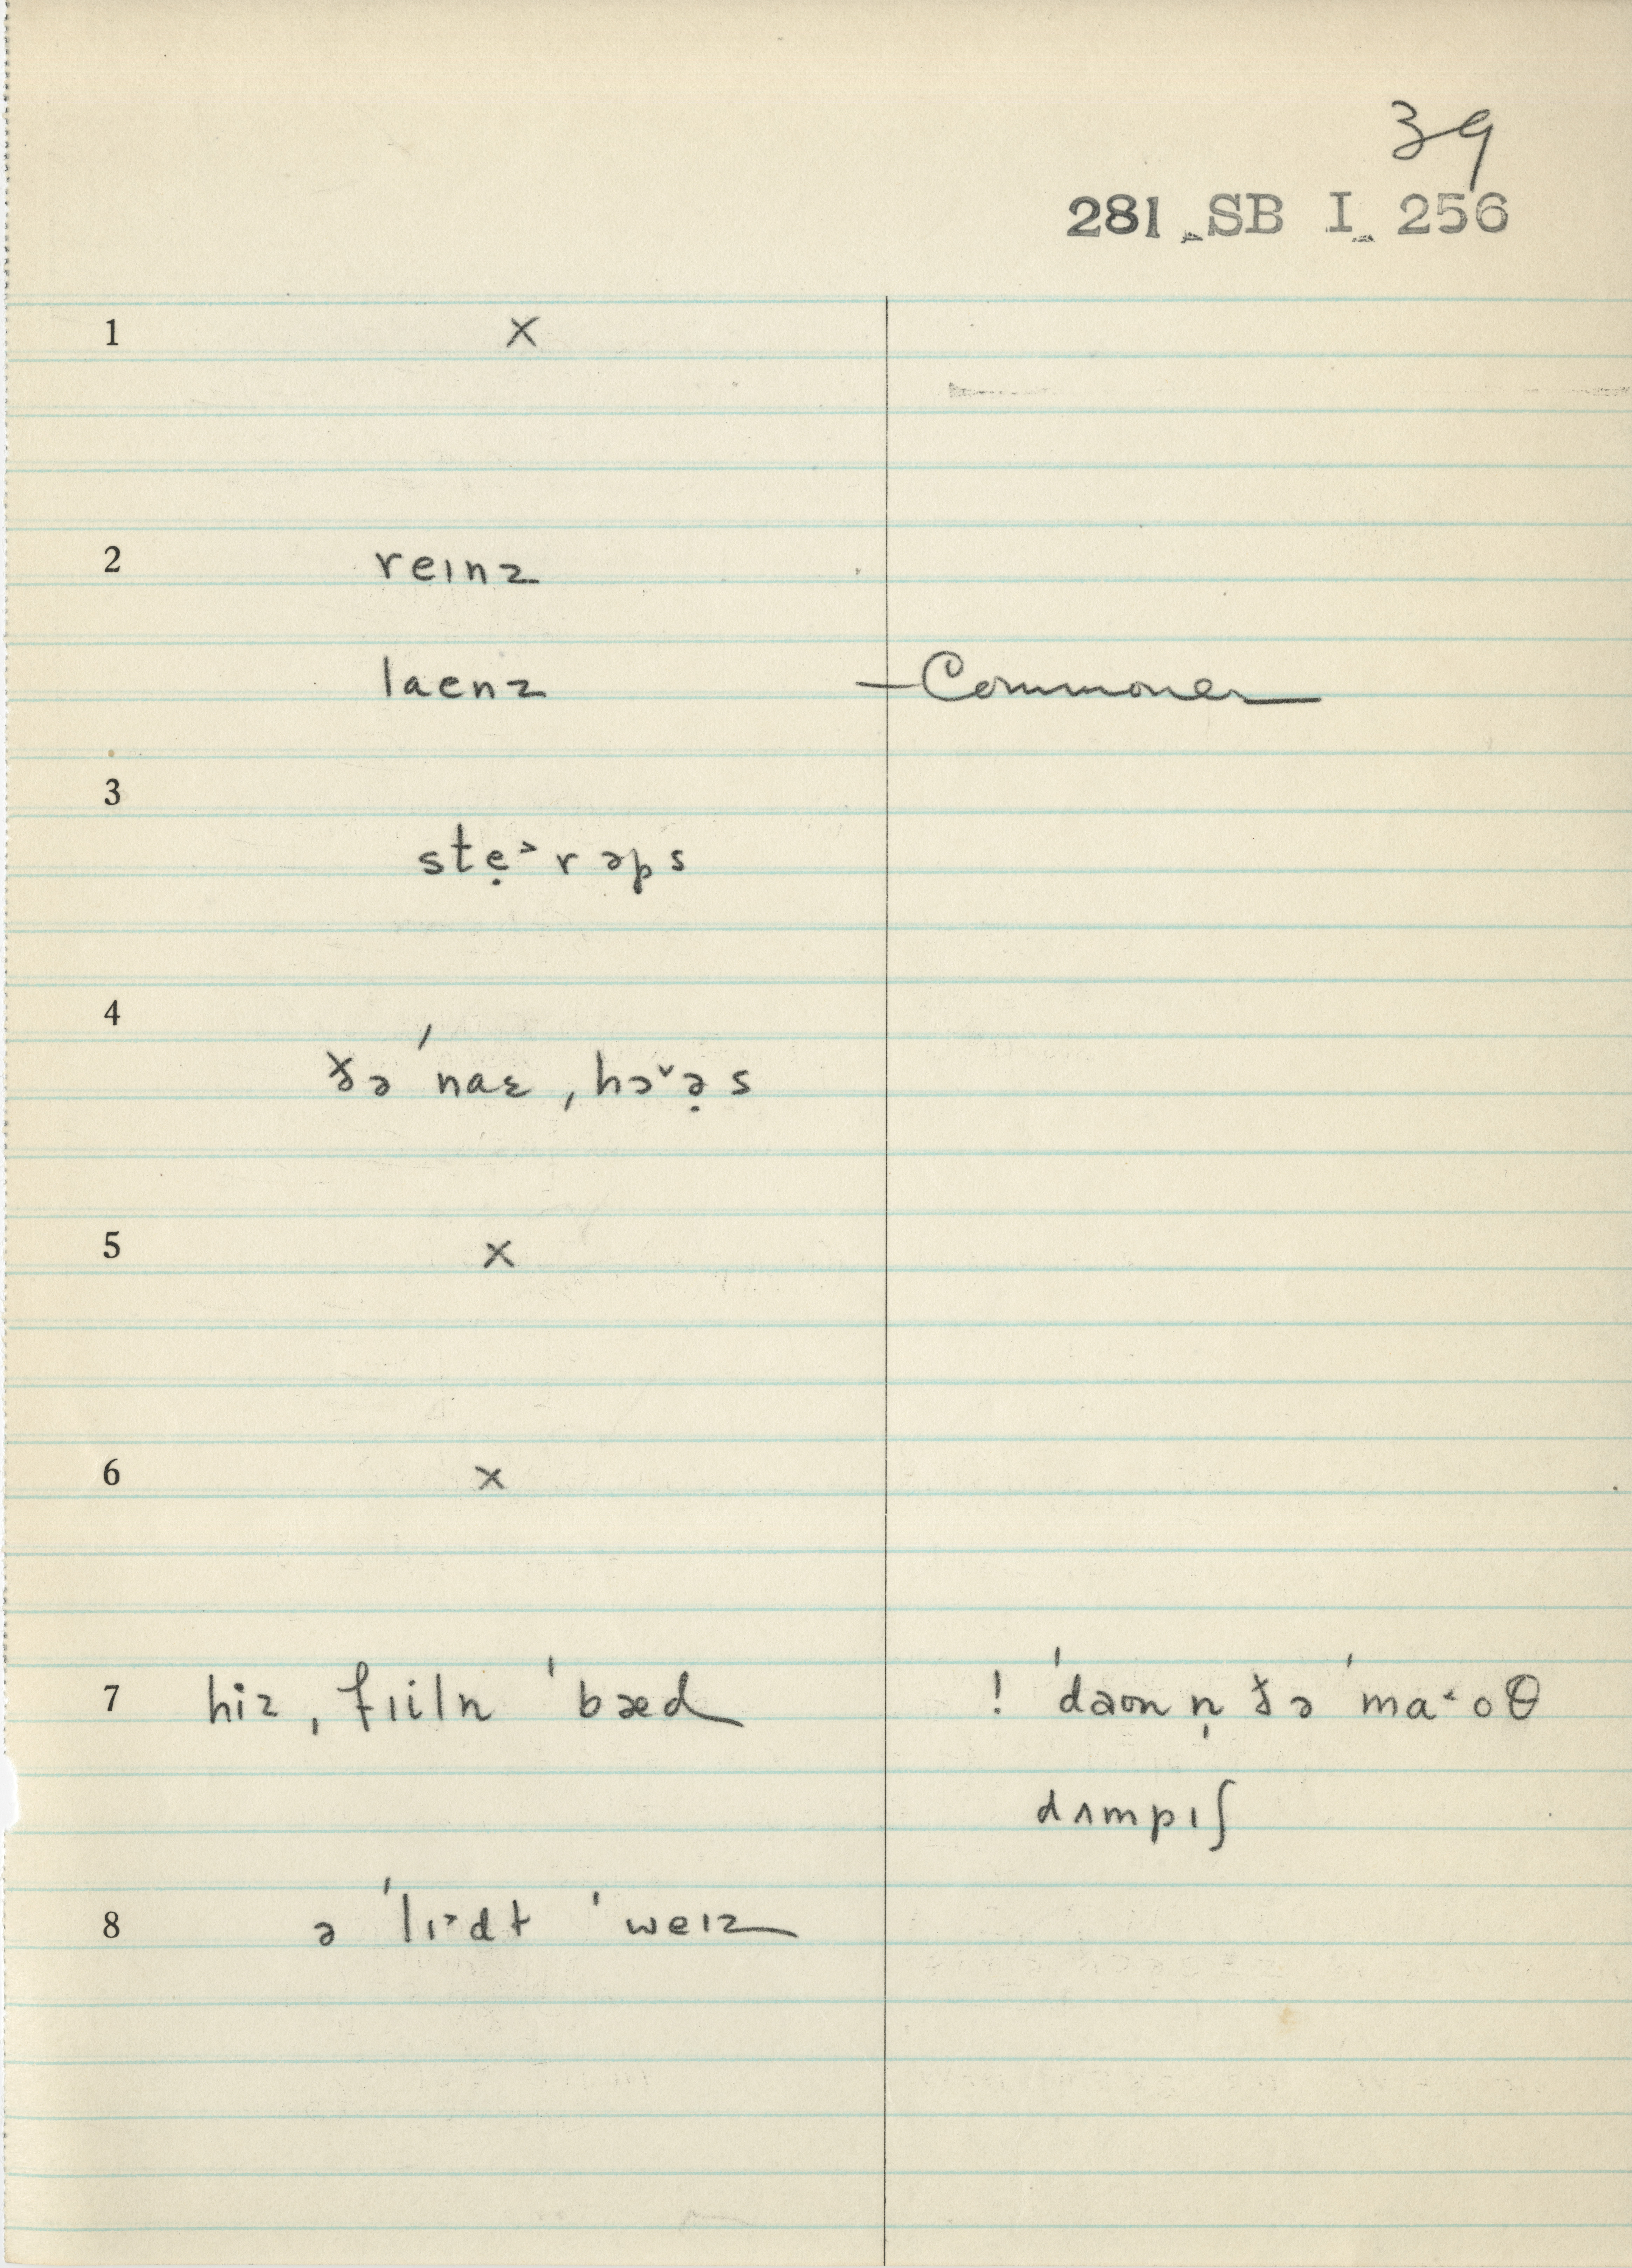 39
281 SB I 256
1 ×
2 reɪnz
laenz – Commoner
3
stẹ˃rəps
4
ðə ˈnaɛ ˌhɔ˅ə̣s
5 ×
6 ×
7 hiz ˌfɪiln ˈbæd ! ˈdaʊn n̩ ðə ˈma˂oθ
dʌmpɪʃ
8 ə ˈlɪ˃dt ˈweɪz